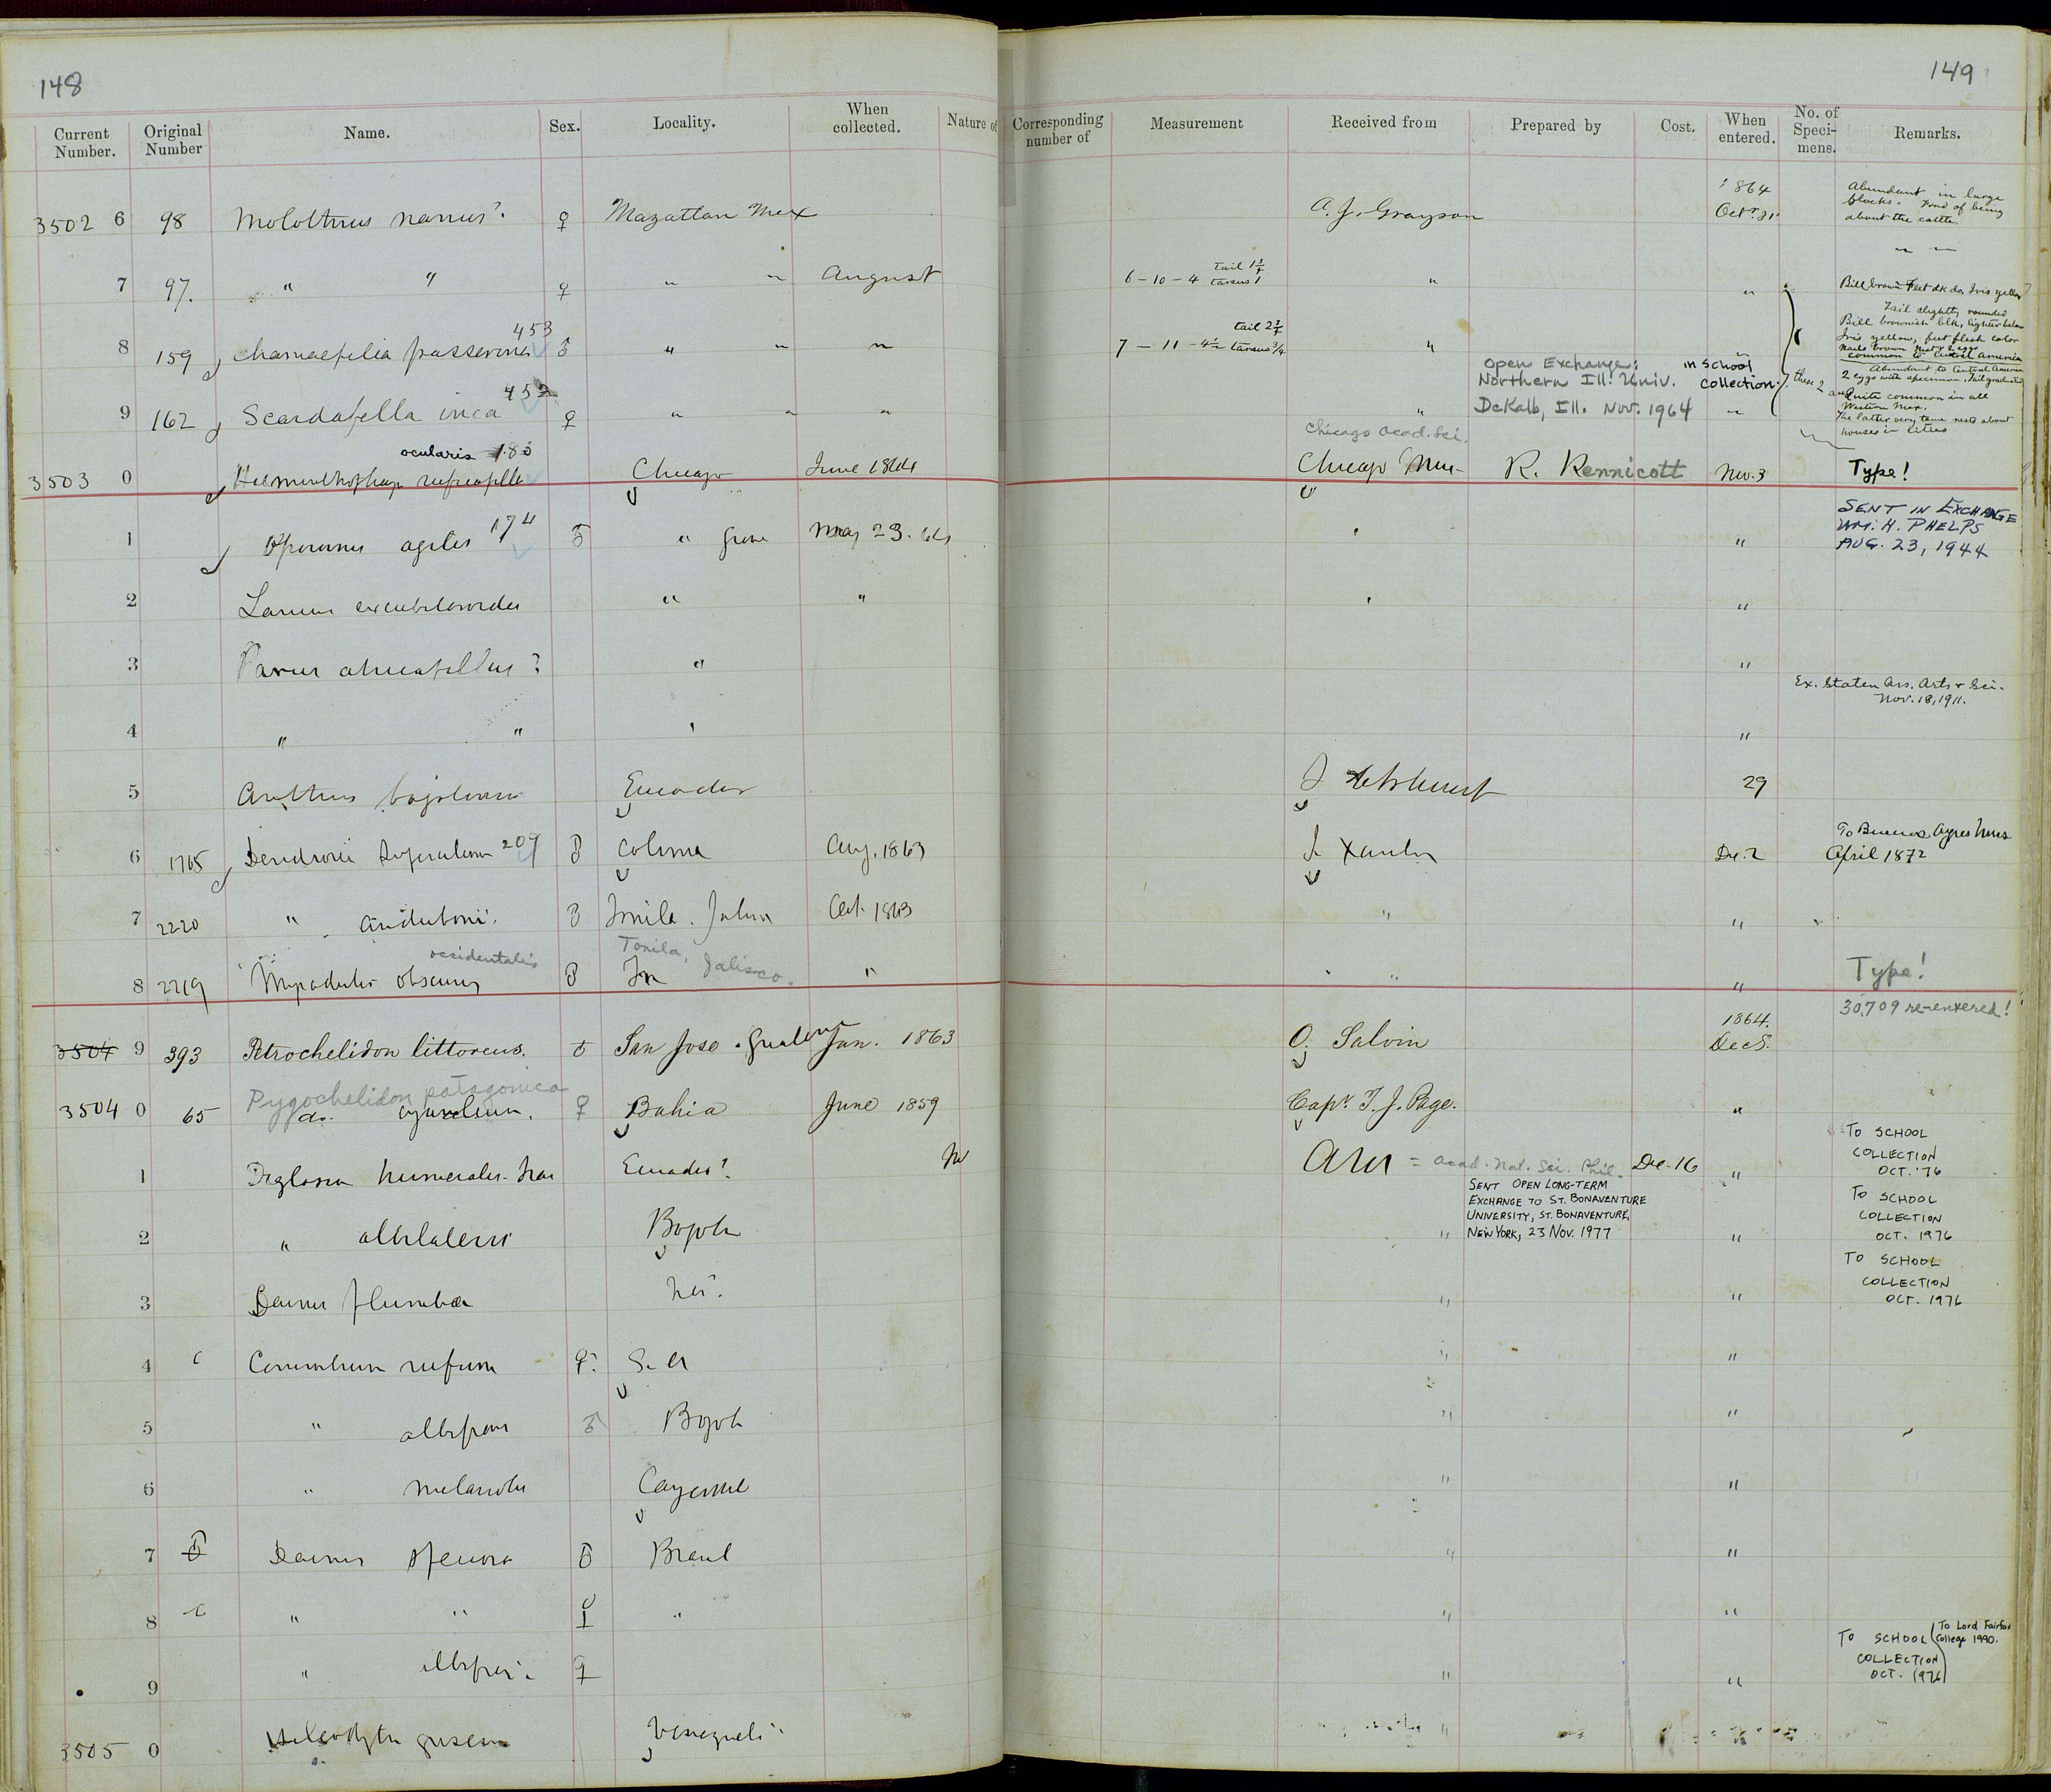 148
149
Current Number. Original Number Name. Sex. Locality. When collected. Nature of
Corresponding number of Measurement Received from Prepared by Cost. When entered. No. of Specimens. Remarks.
3502 6 98 Molothrus ? ♀ Mazatlan Mex A. J. Grayson 1864 Oct. 21
Abundant in large
flocks. Fond of being
about the cattle
7 97. " " ♀ " " August 6 - 10 - 4 tail tarsus 1 " "
Bill brown Feet dk do. Iris yellow
8 159 Chamaepelia passerina 453 ♂ " " " 7 - 11 - 4½ tail tarsus 3/4 "
Tail slightly rounded
Bill brownish blk, lighter below
Iris yellow, feet flesh color
nails brown nest & 2 eggs
common to Central America
Open Exchange:
Northern Ill. Univ.
DeKalb, Ill. Nov. 1964
in School
Collection.
9 162 Scardafella inca 452 ♀ " " " " "
these 2 are
Abundant to Central America
2 eggs with specimen. Tail graduated
Quite common in all
Western Mex.
The latter very tame nests about
houses in cities
Chicago Acad. Sci.
ocularis 180
3503 0 Helminthophaga ruficapilla Chicago June 1864 Chicago R. Kennicott Nov. 3 Type!
1 Oporornis agilis 174 ♂ " Grove May 23. 64 "
SENT IN EXCHANGE
WM. H. PHELPS
AUG. 23, 1944
2 Lanius excubitoroides " " "
3 Parus atricapillus ? " "
Ex. Staten Ass. Arts & Sci.
Nov. 18, 1911.
4 " " "
5 Anthus bogotensis Ecuador 29
6 1765 Dendroica superciliosa 209 ♂ Colima Aug. 1863 J. Xantus De. 2
To Buenos Ayres Mus
April 1872
7 2220 " audubonii. ♂ Tonila. Jalisco Oct. 1863 " "
occidentalis
Tonila, Jalisco.
8 2219 Myiadestes obscurus ♂ " " " Type!
30,709 re-entered!
3504 9 393 Petrochelidon littoreus. ♂ San Jose. Jan. 1863 O. Salvin 1864. Dec 5.
Pygochelidon patagonica
3504 0 65 do. cyanoleuca. ♀ Bahia June 1859 Capt. T. J. Page. "
1 Diglossa humeralis Ecuador? = Acad. Nat. Sci. Phil. De. 16 "
TO SCHOOL
COLLECTION
OCT. '76
SENT OPEN LONG-TERM
EXCHANGE TO ST. BONAVENTURE
UNIVERSITY, ST. BONAVENTURE,
NEW YORK, 23 NOV. 1977
2 " albilateris Bogota " "
TO SCHOOL
COLLECTION
OCT. 1976
3 Dacnis plumbea " "
TO SCHOOL
COLLECTION
OCT. 1976
4 Conirostrum rufum ♀. S. A " "
5 " albifrons ♂ Bogota " "
6 " Cayenne " "
7 Dacnis ♂ Brazil " "
8 " " ♀ " " "
9 " ♀ " "
TO SCHOOL
COLLECTION
OCT. 1976
To Lord Fairfax
College 1990.
3505 0 Venezuela "